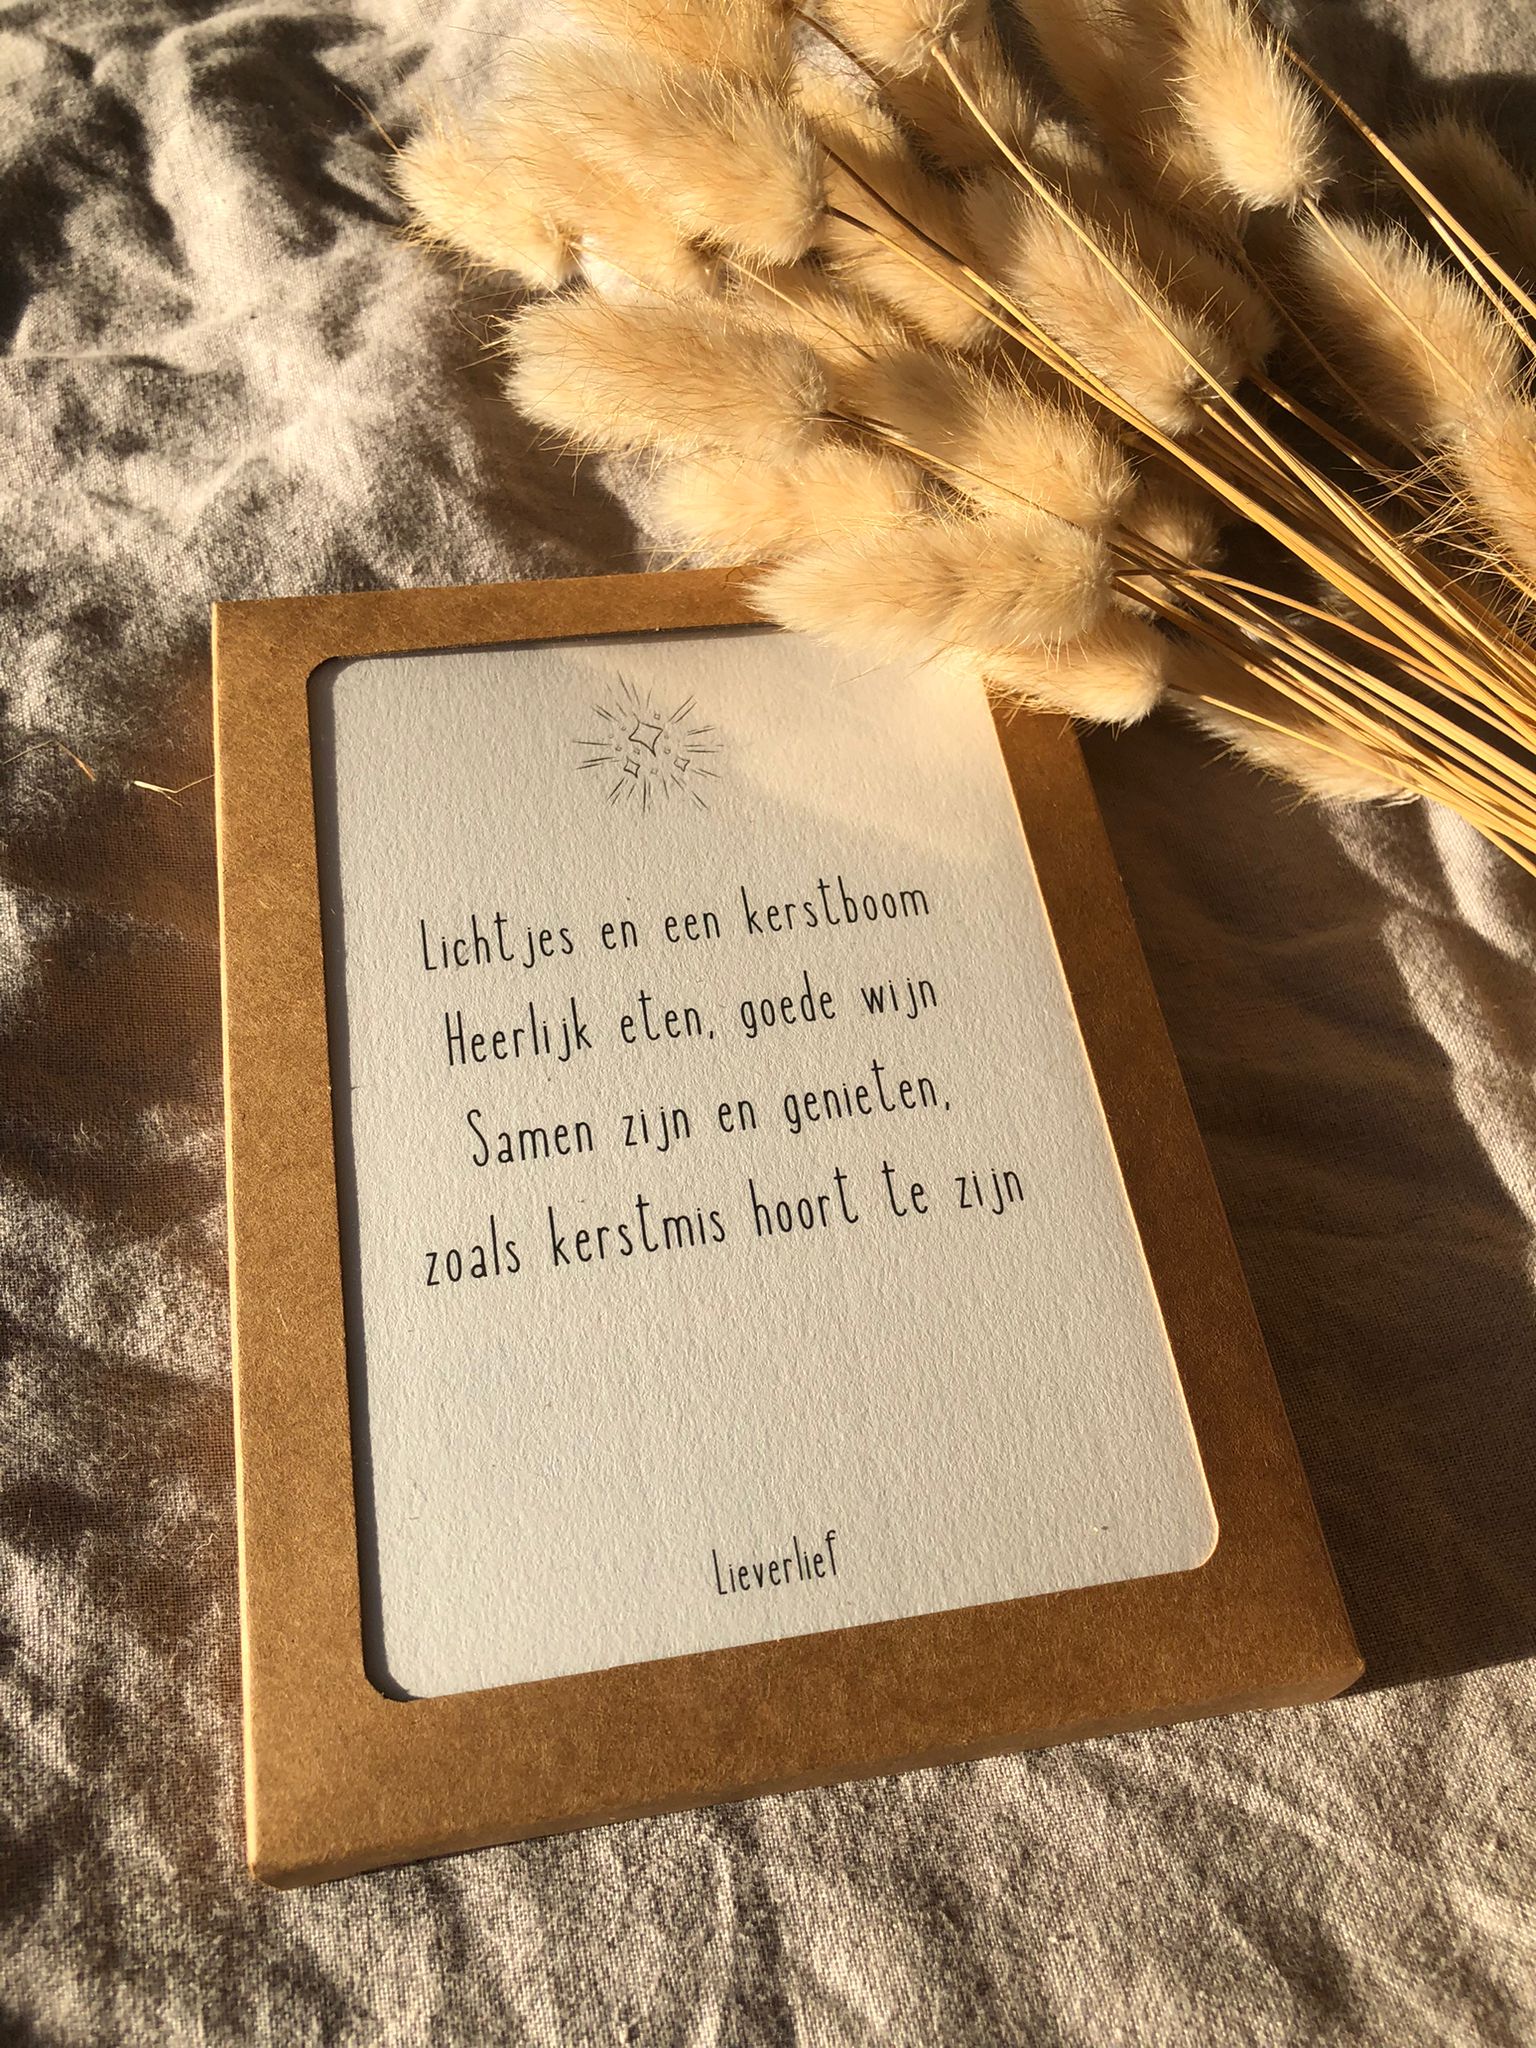 Lichtjes en een kerstboom
Heerlijk eten, goede wijn
Samen zijn en genieten,
zoals kerstmis hoort te zijn
Lieverlief